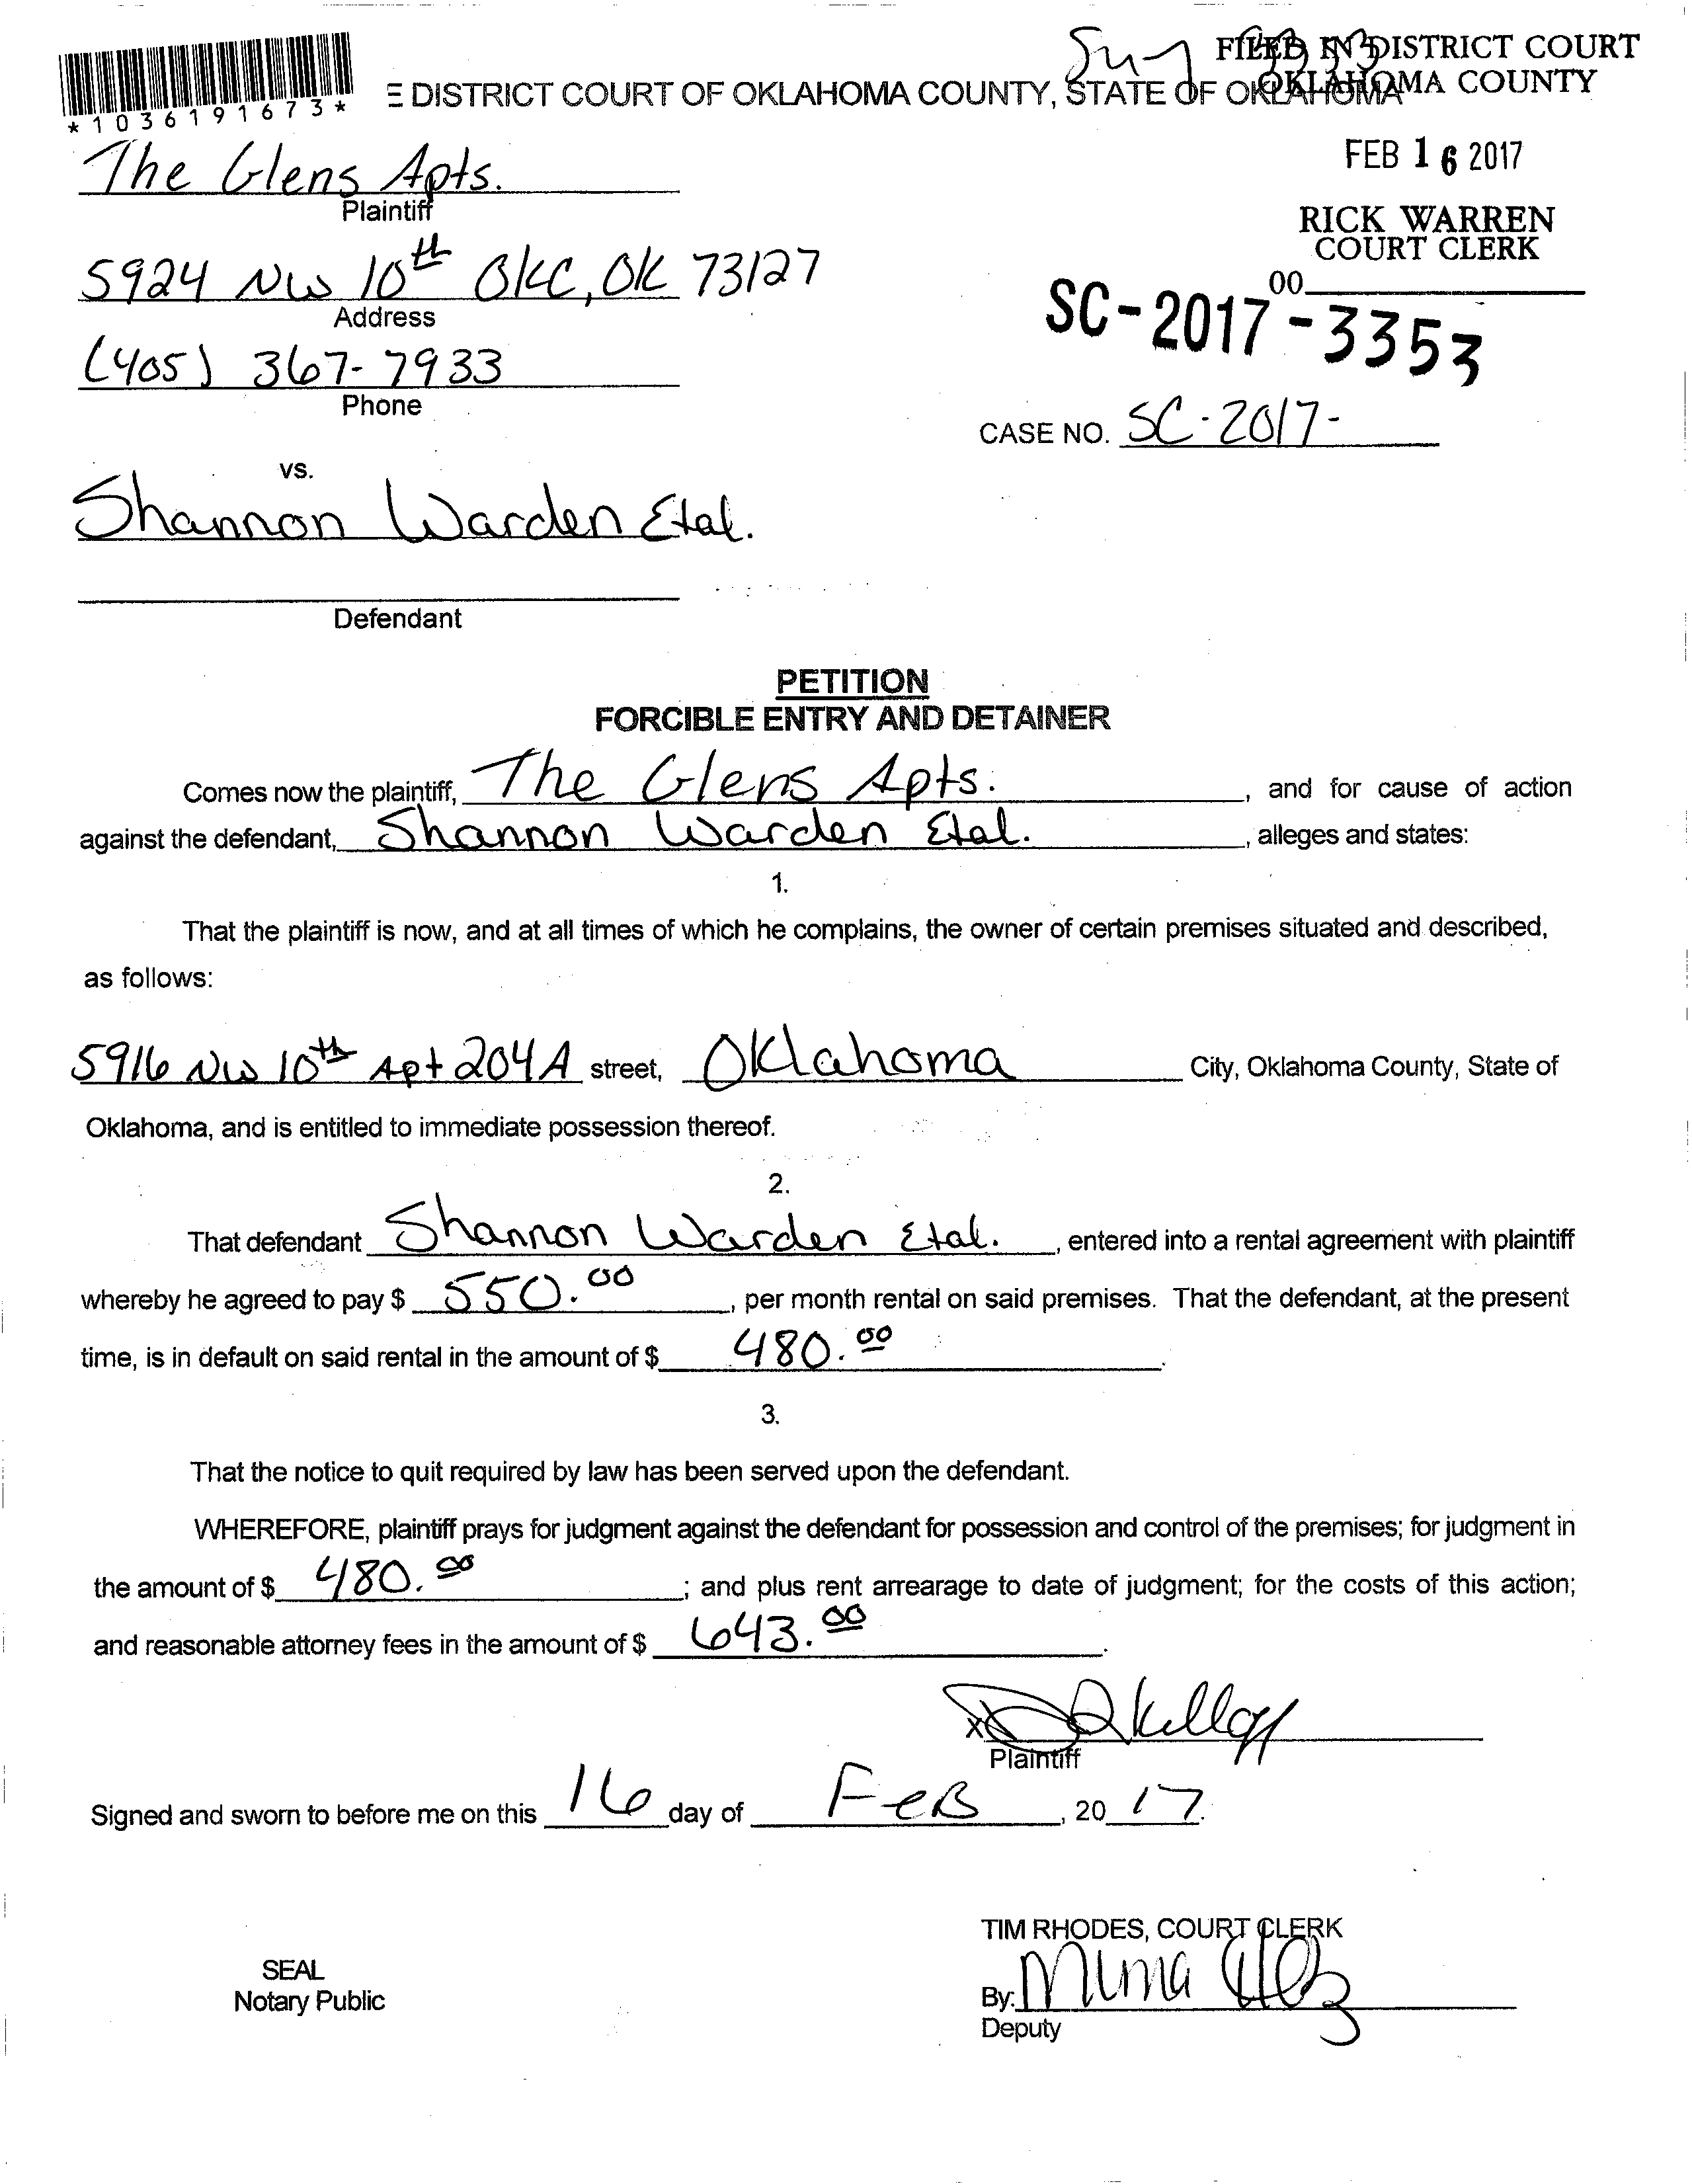 FILED IN DISTRICT COURT
OKLAHOMA COUNTY
*1036191673*
E DISTRICT COURT OF OKLAHOMA COUNTY, STATE OF OKLAHOMA
FEB 16 2017
The Glens Apts.
Plaintiff
RICK WARREN
COURT CLERK
5924 NW 10th OKC, OK 73127
Address
00
SC-2017-3353
(405) 367-7933
Phone
CASE NO. SC-2017-
vs.
Shannon Warden Etal.
Defendant
PETITION
FORCIBLE ENTRY AND DETAINER
Comes now the plaintiff, The Glens Apts. , and for cause of action
against the defendant, Shannon Warden Etal. , alleges and states:
1.
That the plaintiff is now, and at all times of which he complains, the owner of certain premises situated and described,
as follows:
5916 NW 10th Apt 204A street, Oklahoma City, Oklahoma County, State of
Oklahoma, and is entitled to immediate possession thereof.
2.
That defendant Shannon Warden Etal. , entered into a rental agreement with plaintiff
whereby he agreed to pay $ 550.00 , per month rental on said premises. That the defendant, at the present
time, is in default on said rental in the amount of $ 480.00 .
3.
That the notice to quit required by law has been served upon the defendant.
WHEREFORE, plaintiff prays for judgment against the defendant for possession and control of the premises; for judgment in
the amount of $ 480.00 ; and plus rent arrearage to date of judgment; for the costs of this action;
and reasonable attorney fees in the amount of $ 643.00 .
x
Plaintiff
Signed and sworn to before me on this 16 day of FeB , 20 17.
TIM RHODES, COURT CLERK
SEAL
Notary Public
By:
Deputy